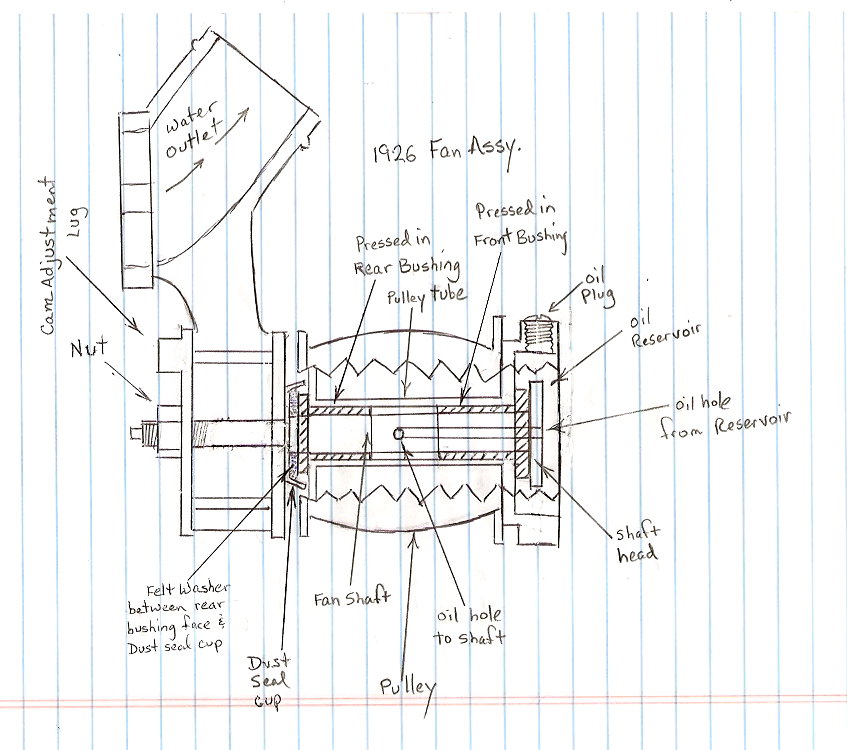 water
outlet
1926 Fan Assy.
Cam Adjustment
Lug
Pressed in
Front Bushing
Pressed in
Rear Bushing
Pulley tube
oil
Plug
oil
Reservoir
Nut
oil hole
from Reservoir
Shaft
head
Felt Washer
between rear
bushing face &
Dust seal cup
Fan Shaft
oil hole
to shaft
Dust
Seal
Cup
Pulley